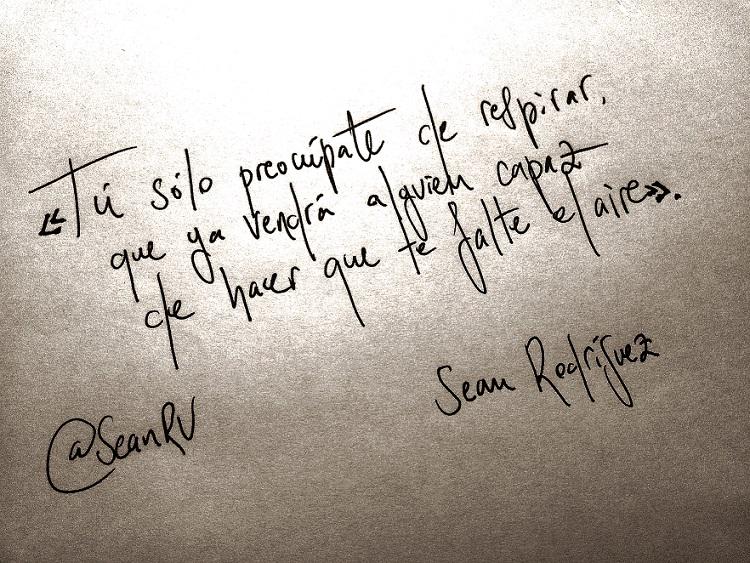 «Tú sólo preocúpate de respirar,
que ya vendrá alguien capaz
de hacer que te falte el aire».
Sean Rodríguez
@SeanRV